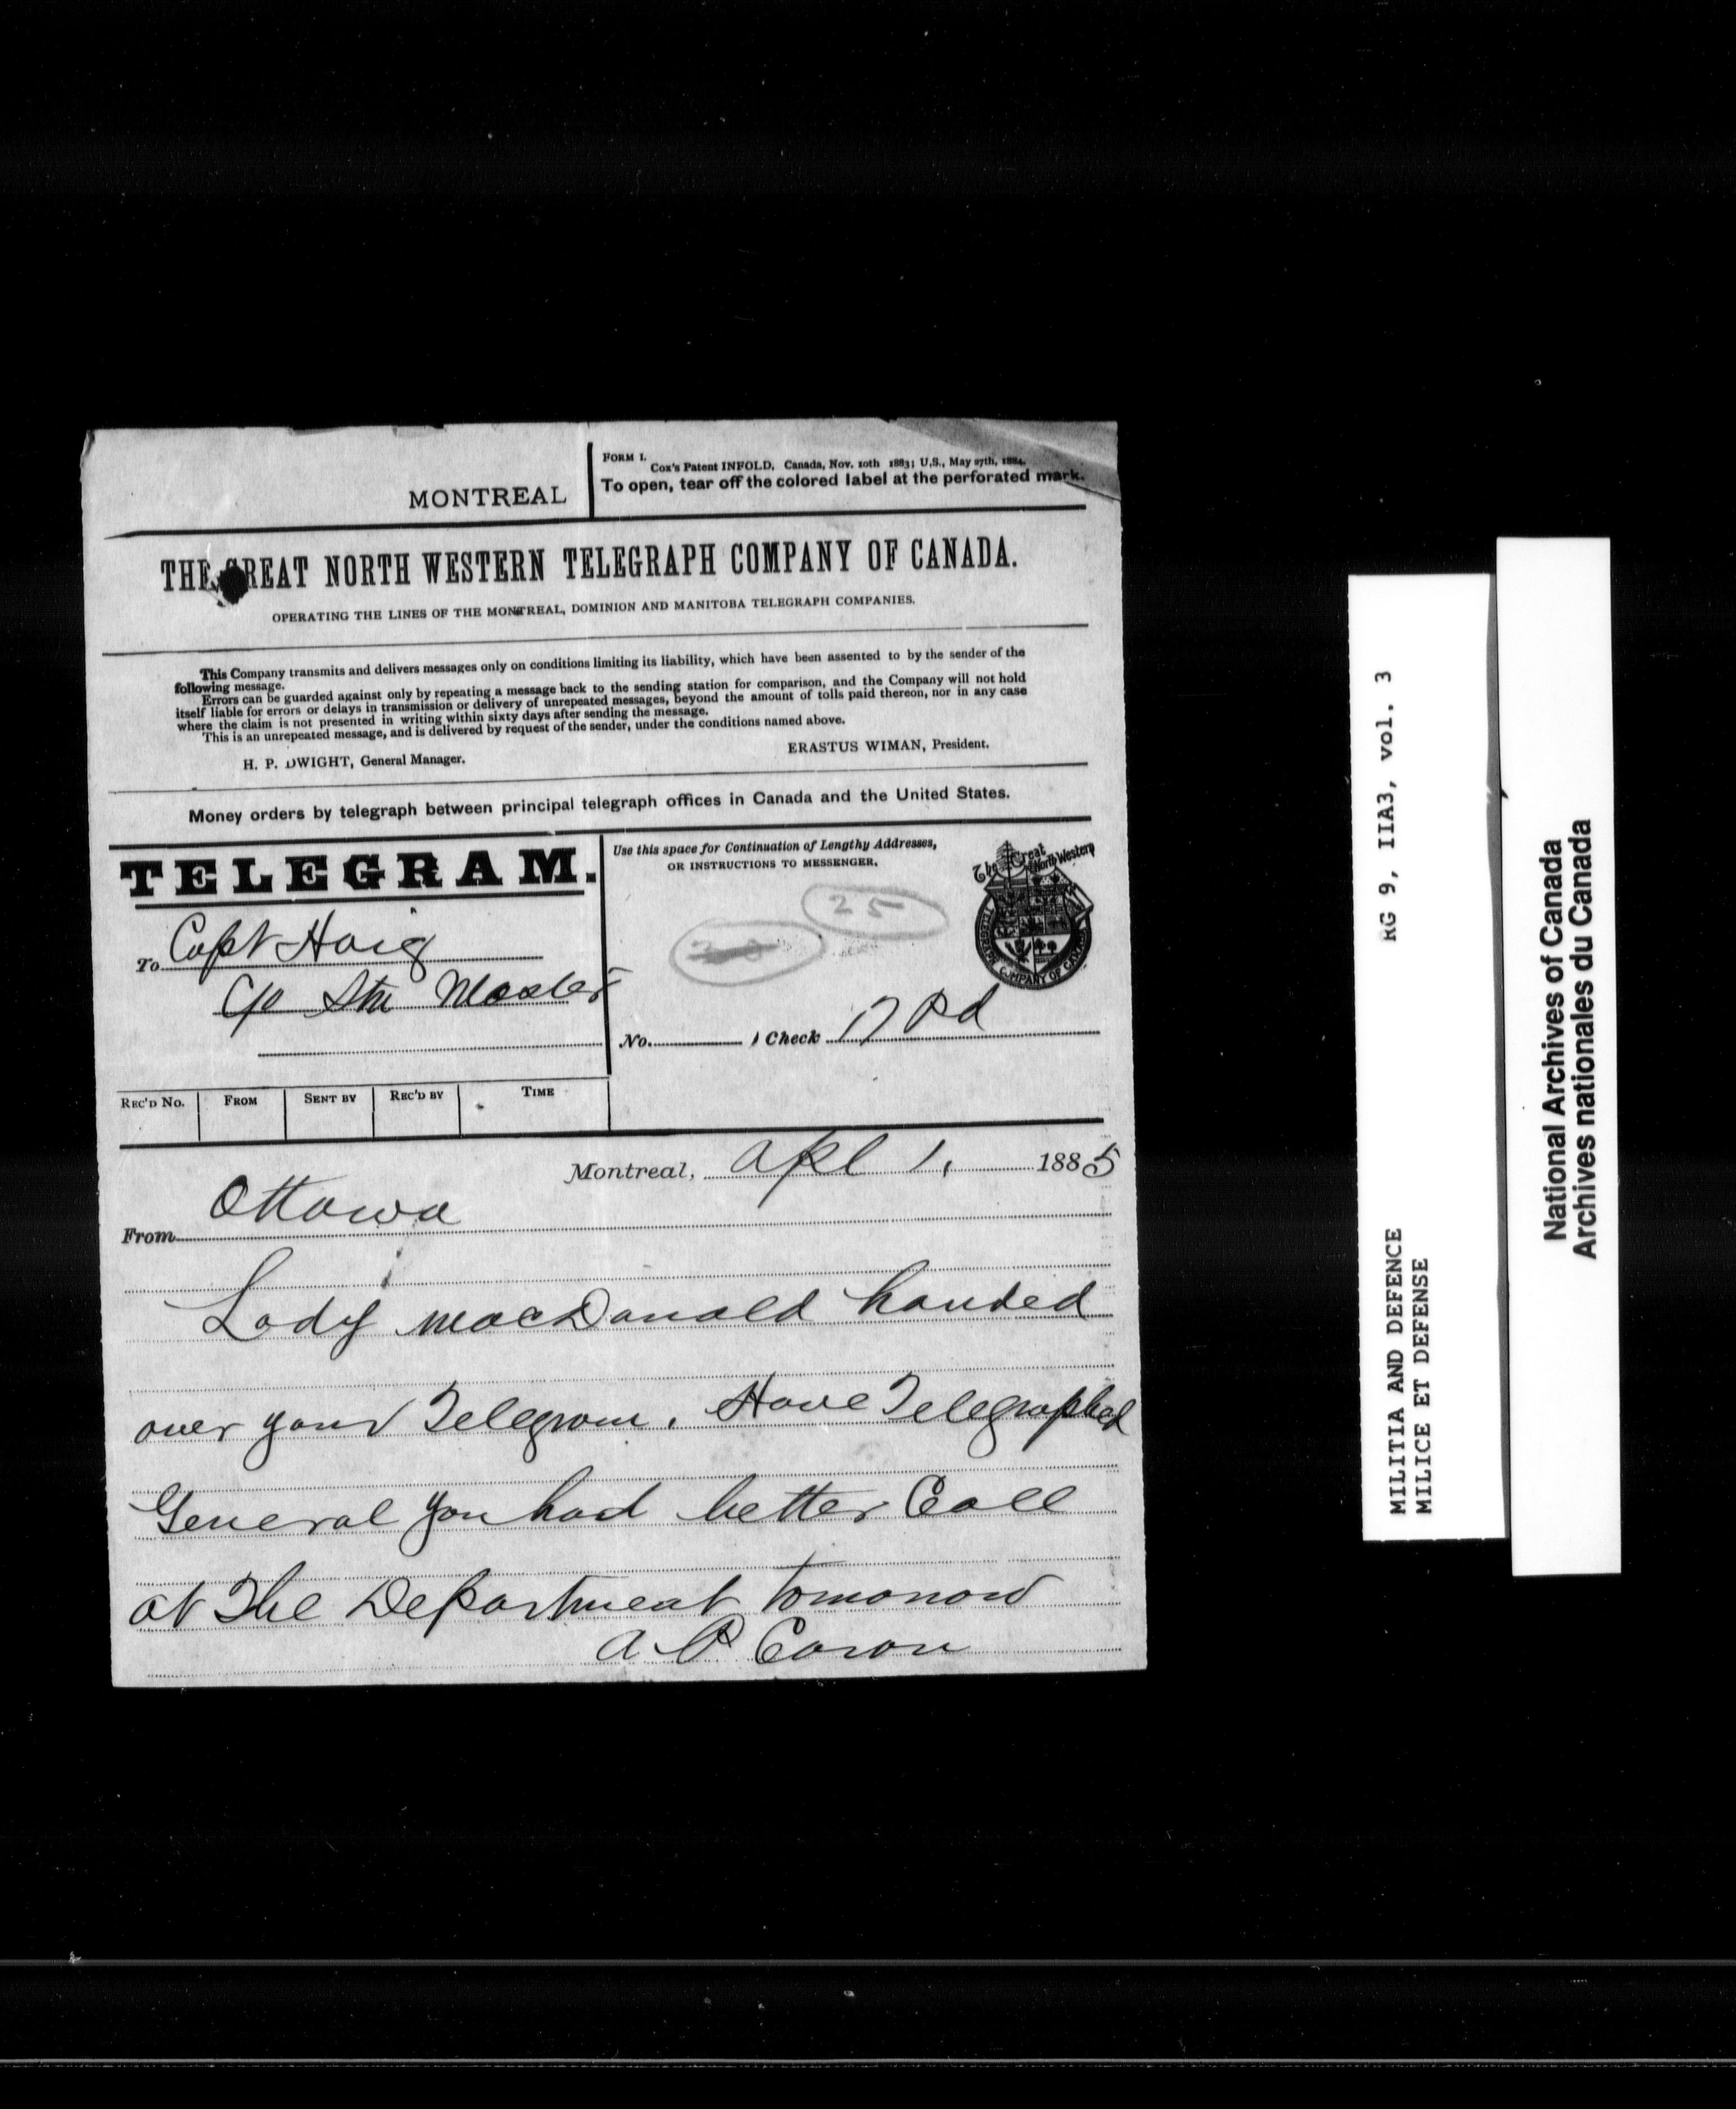 MONTREAL
FORM 1.
Cox's Patent INFOLD, Canada, Nov. 10th 1883; U.S., May 27th, 1884.
To open, tear off the colored label at the perforated mark.
THE GREAT NORTH WESTERN TELEGRAPH COMPANY OF CANADA.
OPERATING THE LINES OF THE MONTREAL, DOMINION AND MANITOBA TELEGRAPH COMPANIES.
This Company transmits and delivers messages only on conditions limiting its liability, which have been assented to by the sender of the
following message.
Errors can be guarded against only by repeating a message back to the sending station for comparison, and the Company will not hold
itself liable for errors or delays in transmission or delivery of unrepeated messages, beyond the amount of tolls paid thereon, nor in any case
where the claim is not presented in writing within sixty days after sending the message.
This is an unrepeated message, and is delivered by request of the sender, under the conditions named above.
ERASTUS WIMAN, President.
H. P. DWIGHT, General Manager.
Money orders by telegraph between principal telegraph offices in Canada and the United States.
TELEGRAM.
Use this space for Continuation of Lengthy Addresses,
OR INSTRUCTIONS TO MESSENGER.
The Great North Western
TELEGRAPH COMPANY OF CANADA
25
To Capt Haig
c/o Stn Master
No. Check 17 Pd
REC'D NO. FROM SENT BY REC'D BY TIME
Montreal, Apl 1, 1885
From Ottawa
Lady MacDonald handed
over your Telegram. Have Telegraphed
General you had better Call
at The Department tomorrow
A P Caron
MILITIA AND DEFENCE RG 9, IIA3, vol. 3
MILICE ET DEFENSE
National Archives of Canada
Archives nationales du Canada